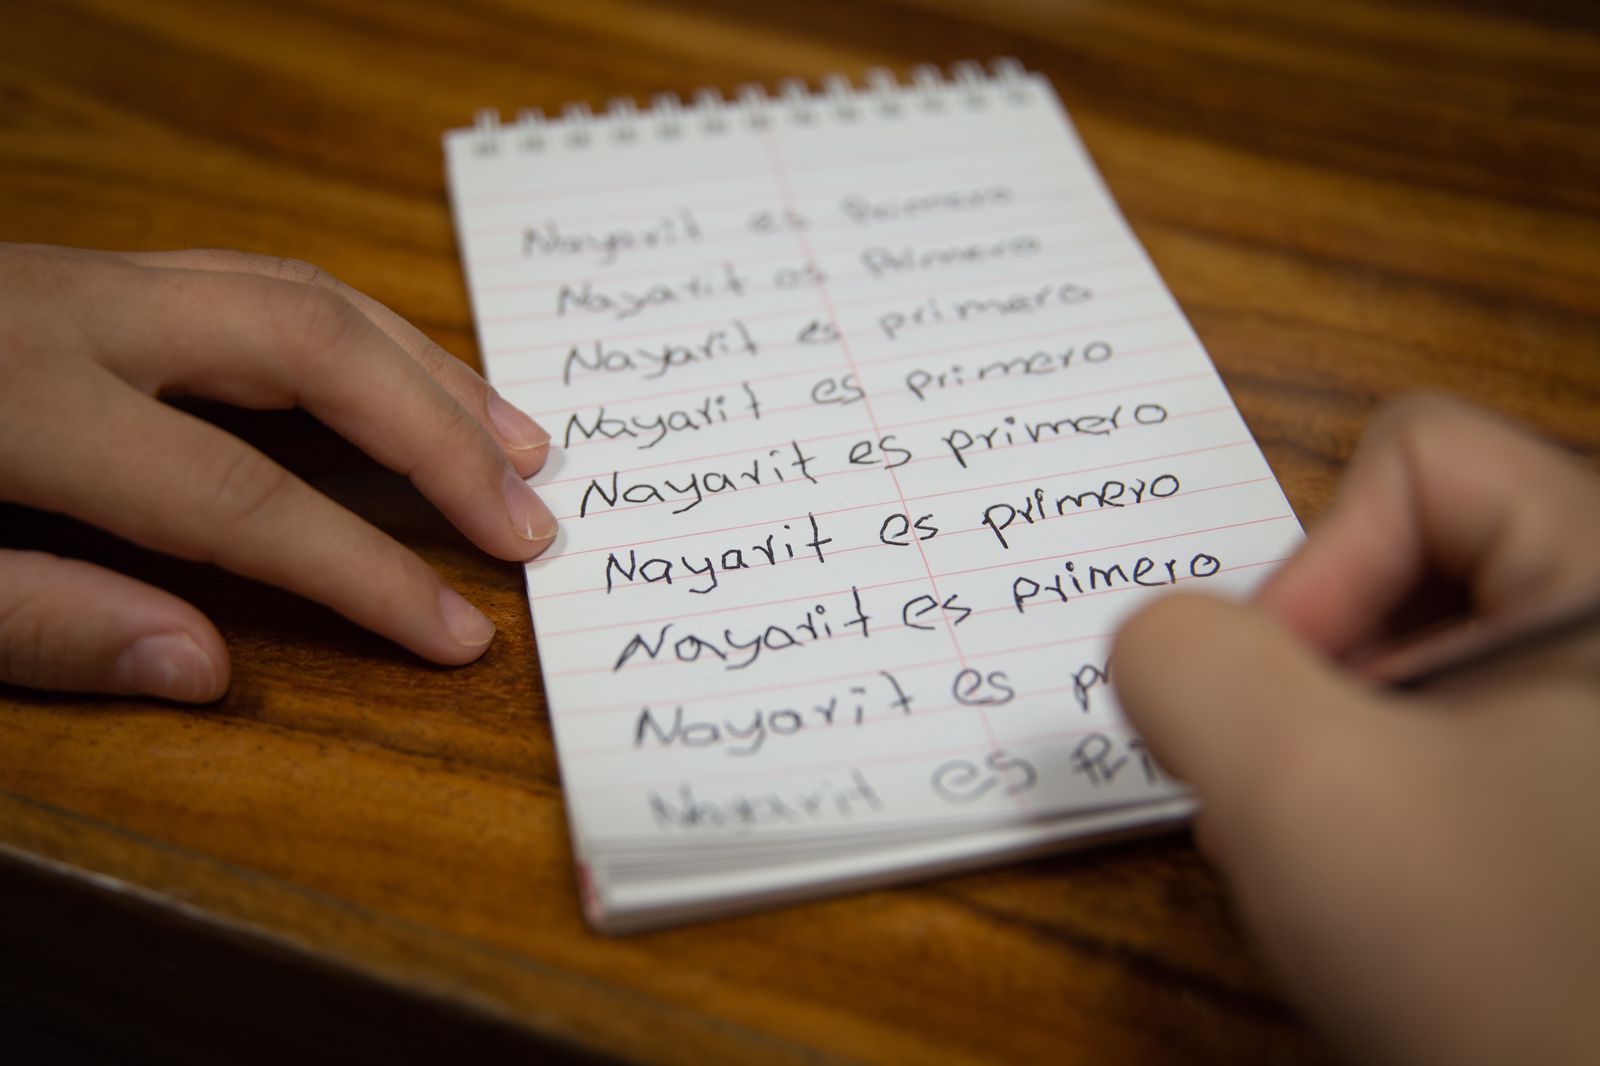 Nayarit es Primero
Nayarit es Primero
Nayarit es primero
Nayarit es primero
Nayarit es primero
Nayarit es primero
Nayarit es primero
Nayarit es
Nayarit es